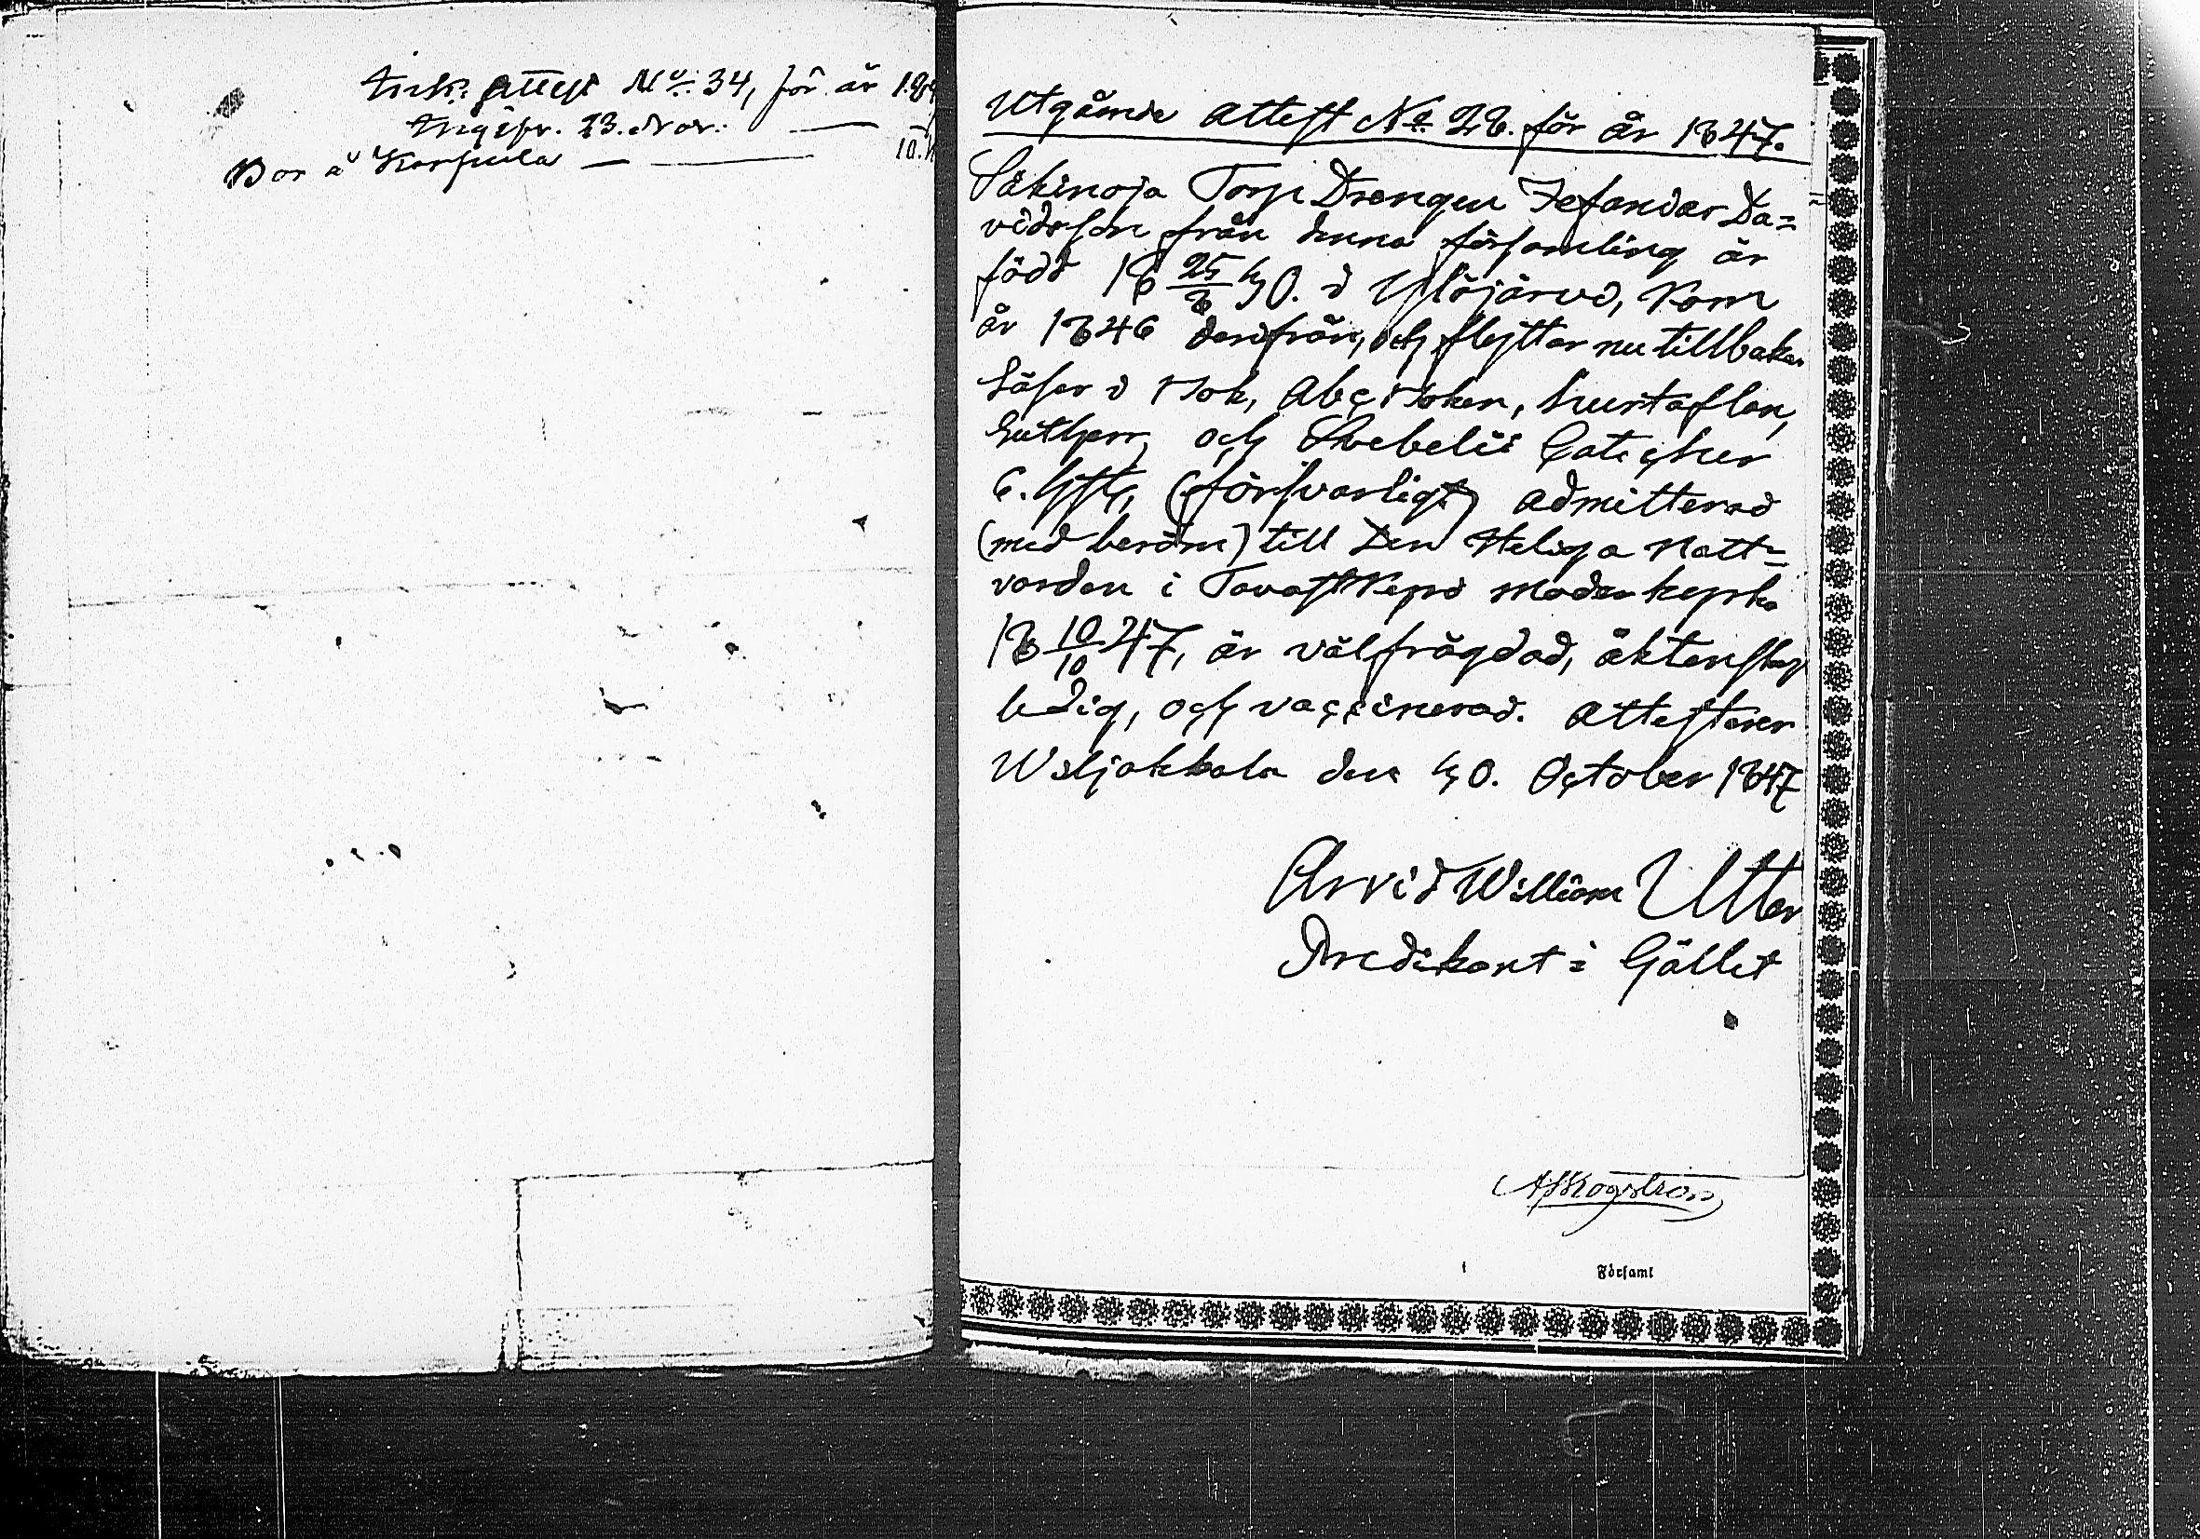 Ink. Attest No. 34, för år 184
Ingifv. 23. Nov.
Bor å Karpula
Utgående Attest No. 28. för år 1847.
Säkinoja Torp Drengen Zefanias Da=
vidsson från denna församling är
född 18 25/8 30. i Ylöjärvi, kom
år 1846 derifrån, och flyttar nu tillbaka
Läser i Bok, Abc Boken, Hustaflan,
Luther, och Svebelii Cateches
C. H. St. (försvarligt) admitterad
(med beröm) till Den Heliga Natt=
varden i Tavastkyrö Moderkyrka
18 10/10 47, är välfrägdad, äktenskap
ledig, och vaccinerad. Attesterar
Wiljakkala den 30. October 1847
Arvid William Utter
Predikant i Gället
A Skogström
Församl